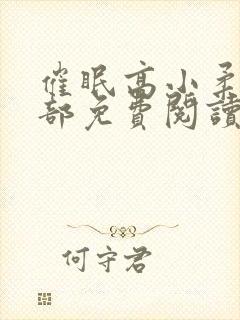 催眠高小柔
部免費閱讀
何守君